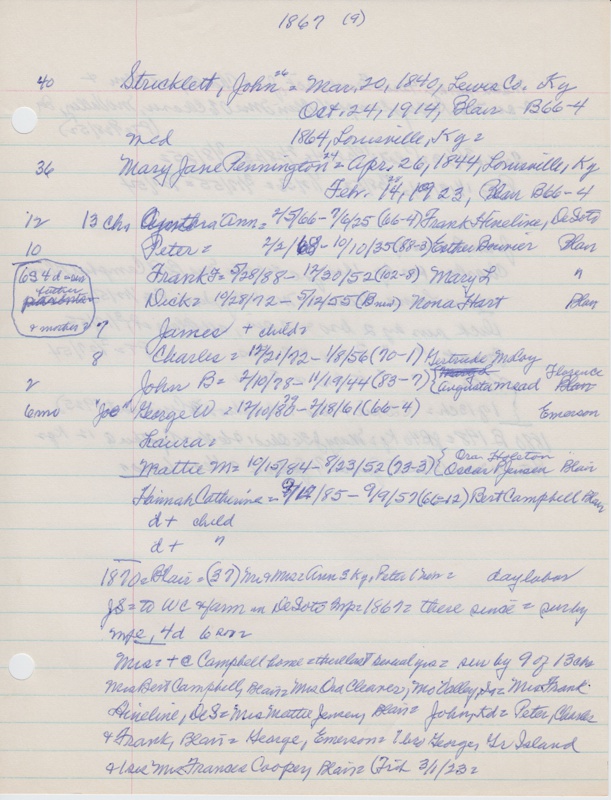 1867 (9)
40 Stricklett, John = Mar. 20, 1840, Lewis Co. Ky
Oct. 24, 1914, Blair B66-4
med 1864, Louisville, Ky =
36 Mary Jane Pennington = Apr. 26, 1844, Louisville, Ky
Feb. 14, 1923, Blair B66-4
12 13 chs Ann = 2/5/66 - 7/6/25 (66-4) Frank Hineline, DeSoto
10 Peter = 2/2/68 - 10/10/35 (88-3) Esther Blair
Frank F = 5/28/88 - 12/30/52 (102-8) Mary L "
6 S 4 d = sur father
& mother = 7
Dick = 10/28/72 - 5/12/55 (B mis) Nona Hart Blair
James + child =
8 Charles = 12/21/72 - 1/8/56 (70-1) Gertrude
2 John B = 2/10/78 - 11/19/44 (83-7) { Augusta Mead Florence Blair
6 mo "Joe" George W. = 12/10/80 - 2/18/61 (66-4) Emerson
Laura =
Mattie M = 10/15/84 - 8/23/52 (73-3) { Ora Holston
Oscar P Jensen Blair
Hannah Catherine = 9/12/85 - 9/9/57 (66-12) Bert Campbell Blair
d + child
d + "
1870 = Blair = (37) Mr & Mrs = Ann 3 Ky, Peter 1 = day labor
JS = to WC & farm in DeSoto 1867 = there since = sur by
4d 6 son =
Mrs = + @ Campbell home = there last several yrs = sur by 9 of 13 chs
Mrs Bert Campbell, Blair = Mrs Ora Cleaver, Mo Valley, Ia = Mrs Frank
Hineline, DeS = Mrs Mattie Jensen, Blair = John, td = Peter, Charles
& Frank, Blair = George, Emerson = 1 bro George, Gr Island
& 1 sis Mrs Frances Cooper, Blair = (Trib 3/1/23 =